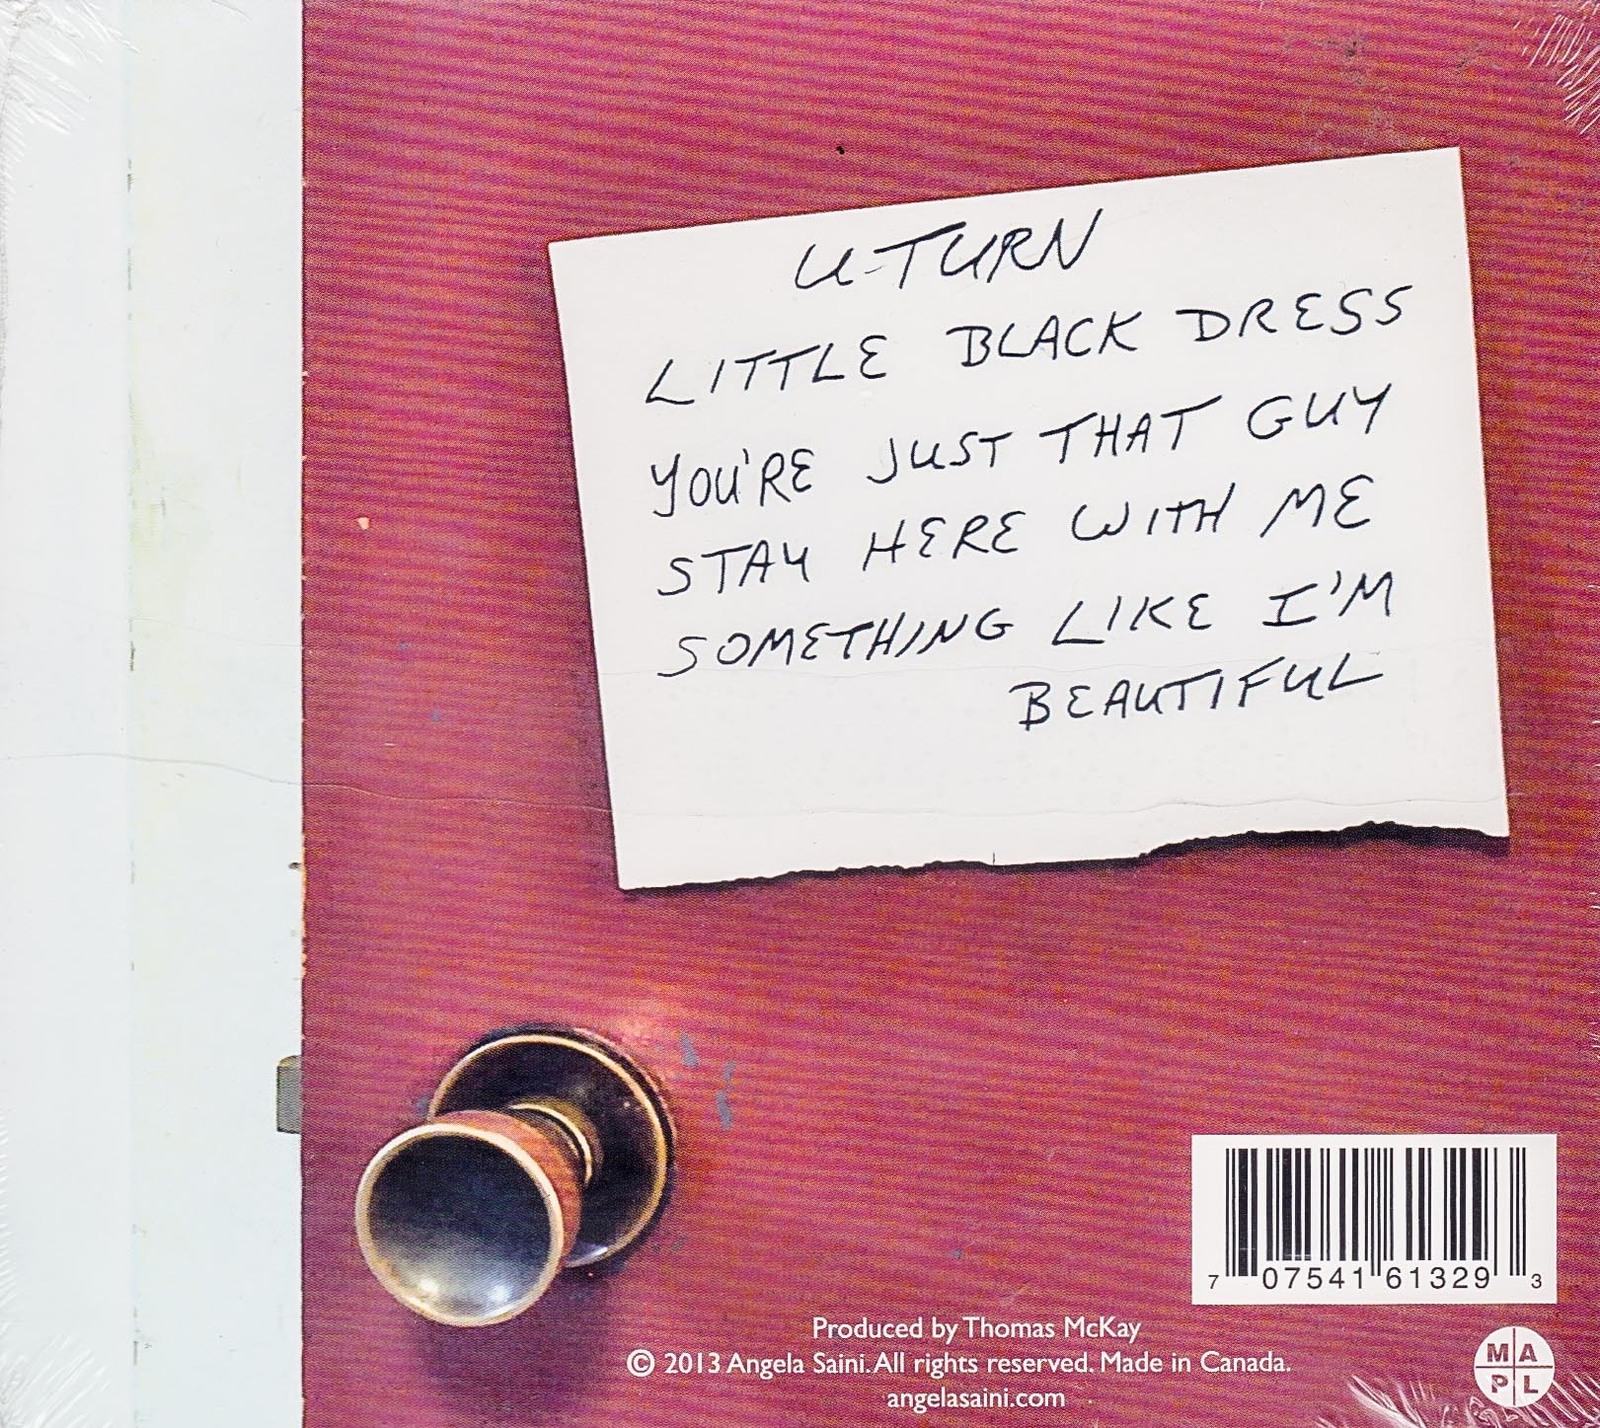 U-TURN
LITTLE BLACK DRESS
YOU'RE JUST THAT GUY
STAY HERE WITH ME
SOMETHING LIKE I'M
BEAUTIFUL
7 07541 61329 3
Produced by Thomas McKay
© 2013 Angela Saini. All rights reserved. Made in Canada.
angelasaini.com
MA
PL